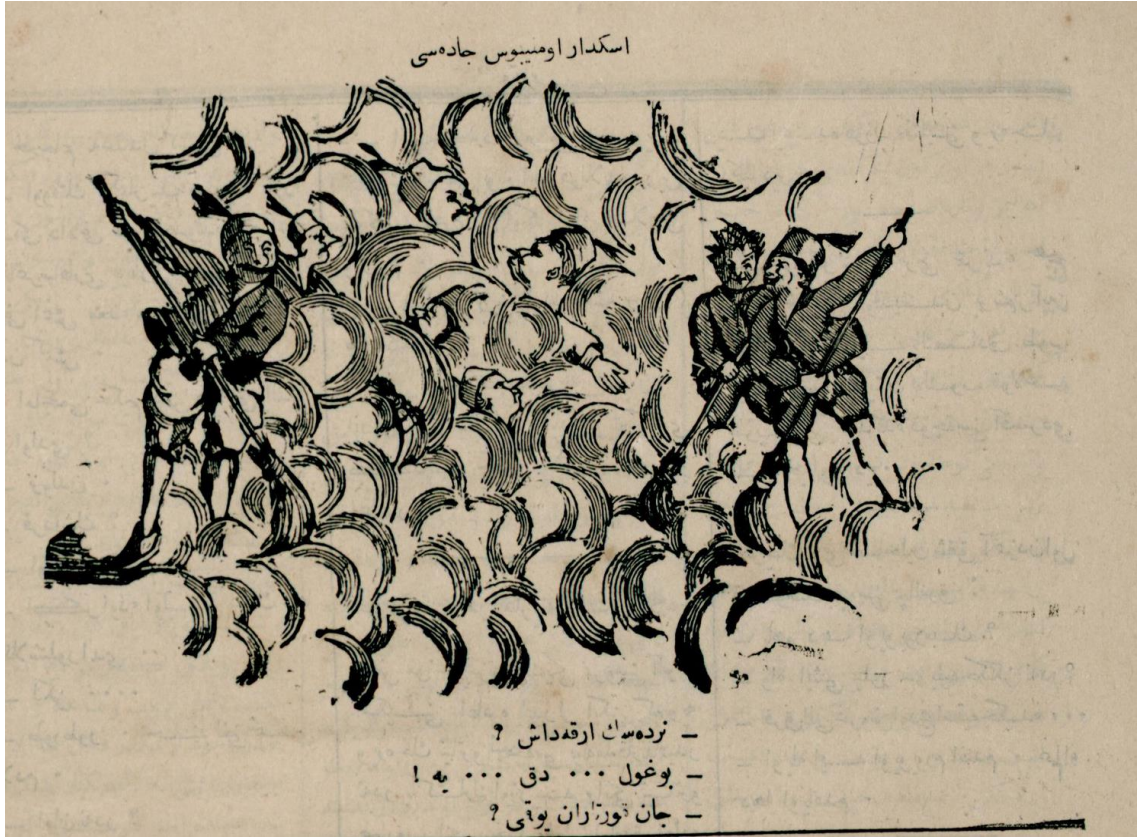 اسكدار اومنيبوس جاده‌سى
– نرده‌سك ارقه‌داش ?
– بوغول ... دق ... يه !
– جان قورتاران يوقمى ?